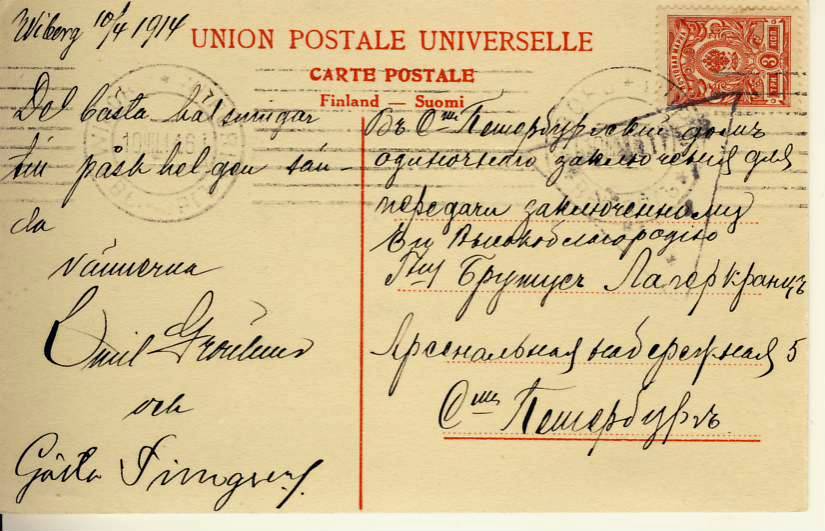 Wiborg 10/4 1914
UNION POSTALE UNIVERSELLE
CARTE POSTALE
Finland — Suomi
3 КОП
De bästa hälsningar
till påsk helgen sän-
da
vännerna
Emil
och
Gösta
Въ С-тъ Петербургскій домъ
одиночнаго заключенія для
передачи заключенному
Его Высокоблагородію
Г-ну Брунусъ Лагеркранцъ
Арсенальная набережная 5
С-тъ Петербургъ